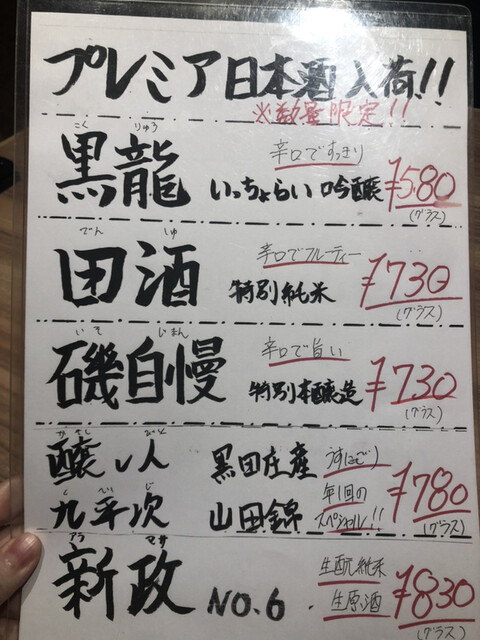 プレミア日本酒入荷!!
※数量限定!!
こくりゅう
黒龍 いっちょらい 吟醸 辛口ですっきり ¥580 (グラス)
でんしゅ
田酒 特別純米 辛口でフルーティー ¥730 (グラス)
いそじまん
磯自慢 特別本醸造 辛口で旨い ¥730 (グラス)
かもしびと
醸し人 黒田庄産 うすにごり
くへいじ
九平次 山田錦 年1回のスペシャル!! ¥780 (グラス)
アラマサ
新政 NO.6 生酛純米 生原酒 ¥830 (グラス)